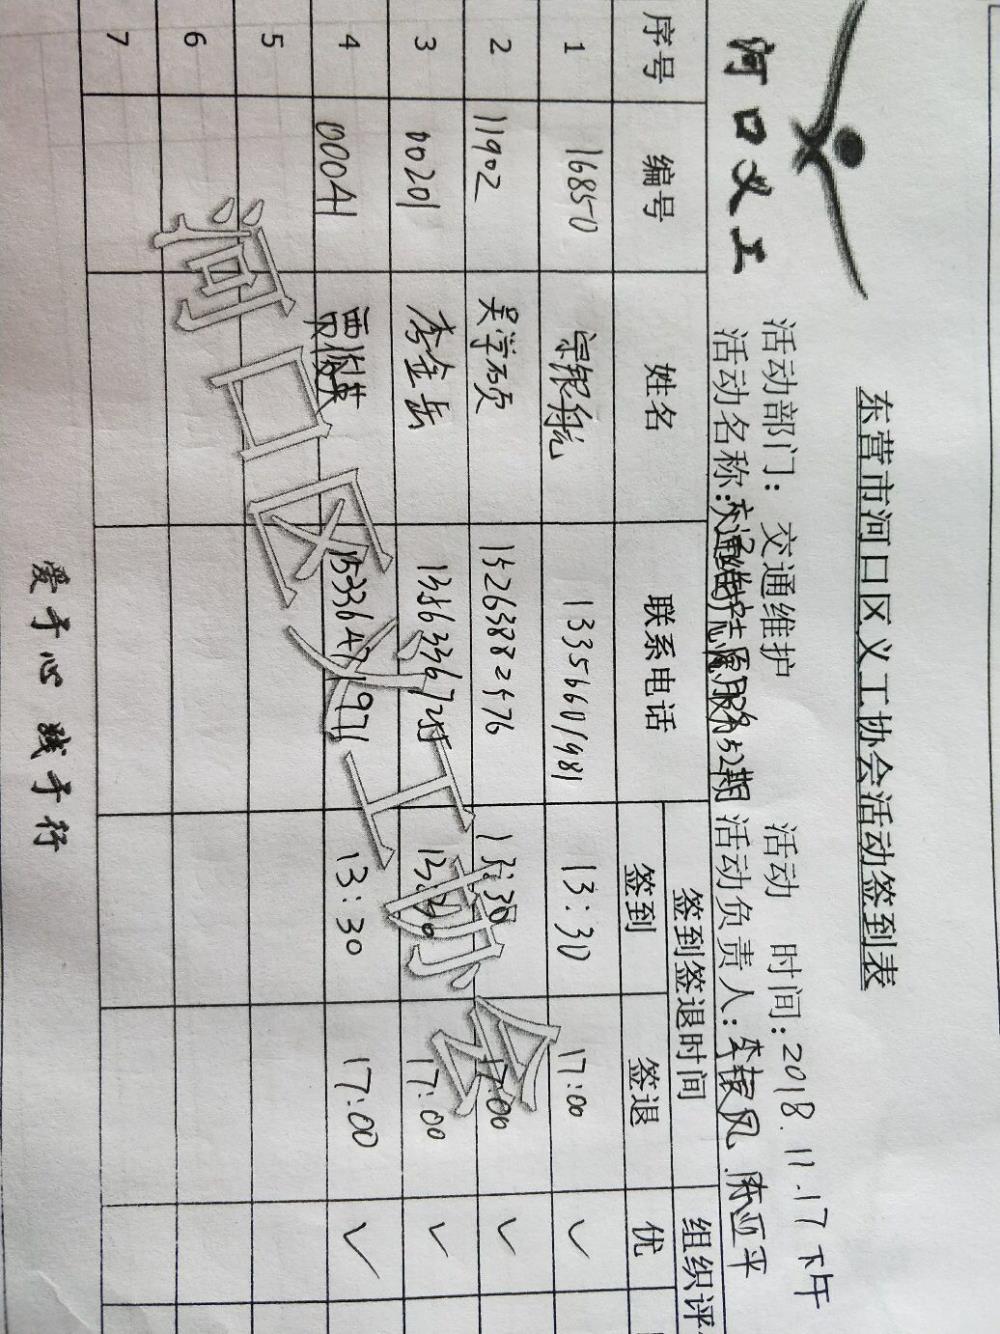 东营市河口区义工协会活动签到表
河口义工
活动部门：交通维护 活动 时间：2018.11.17下午
活动名称：交通维护志愿服务52期 活动负责人：李振风 陈亚平
序号 编号 姓名 联系电话 签到签退时间 组织评
签到 签退 优
1 16850 宗银航 13356601981 13:30 17:00 ✓
2 11902 吴学硕 15263882476 13:30 17:00 ✓
3 00201 李金岳 13563367255 13:30 17:00 ✓
4 00041 贾俊英 15336471971 13:30 17:00 ✓
5
6
7
河口区义工协会
爱于心 践于行